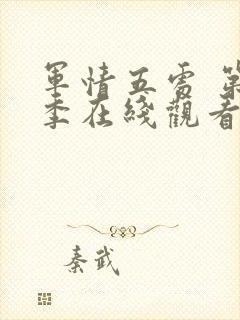 軍情五處 第
季在綫觀看
秦武